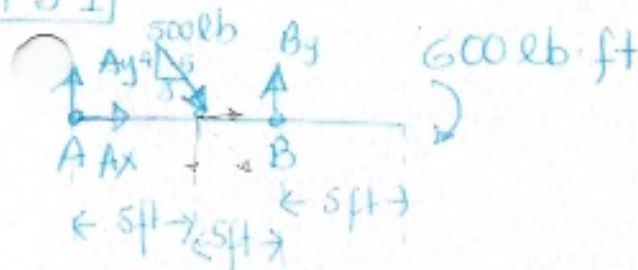 F5-1
500lb
Ay 4 5 By 600 lb·ft
3
A Ax B
5ft 5ft 5ft